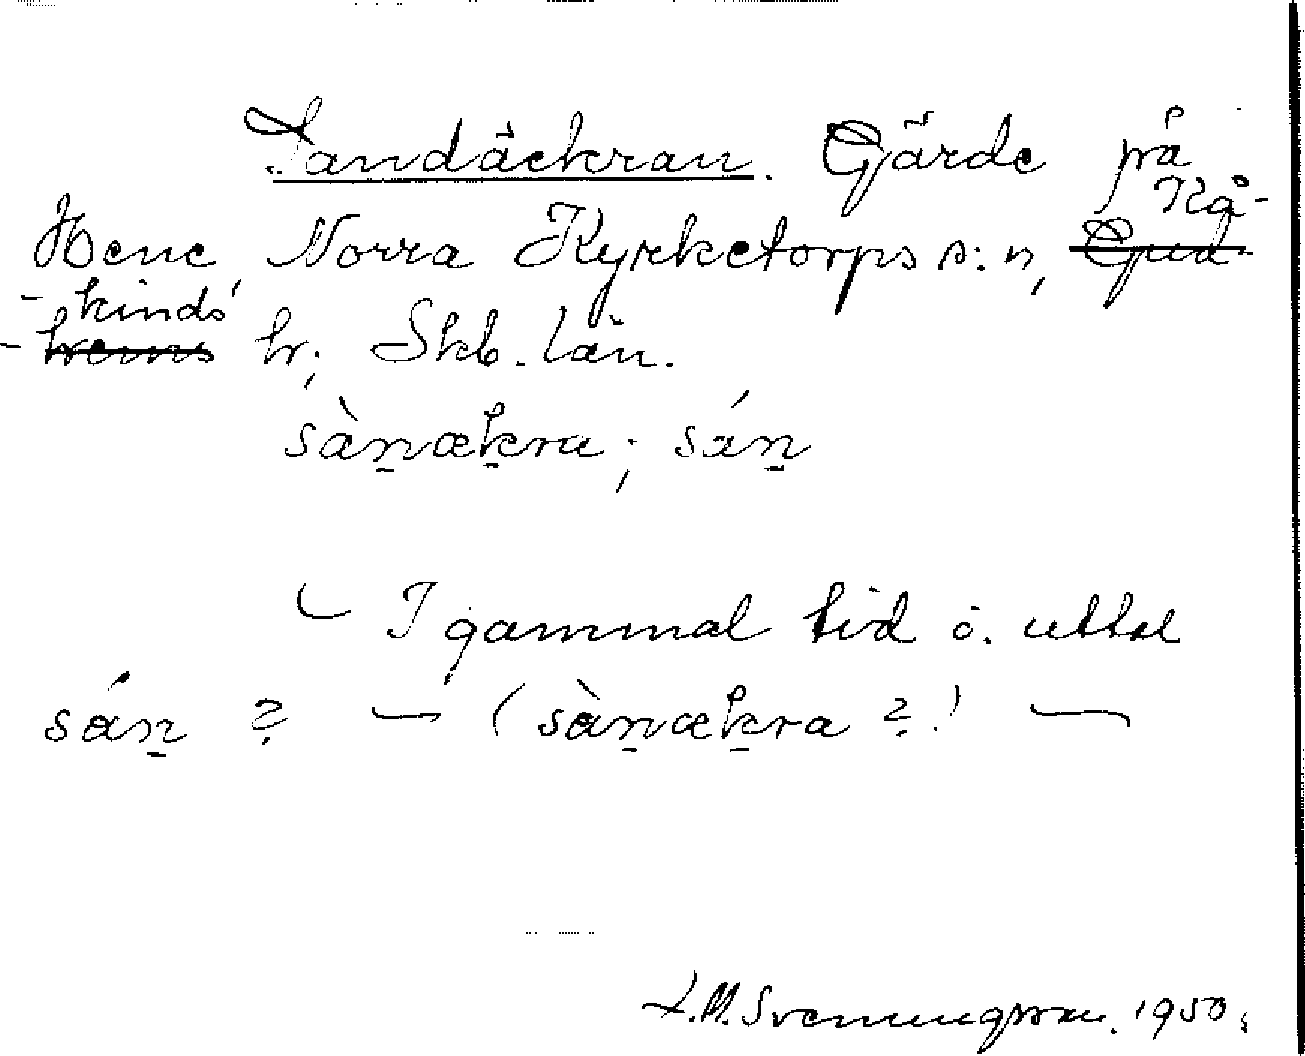 Sandäckran. Gärde på
Hene, Norra Kyrketorps s:n, Kå-
-kinds hr; Skb. län.
sàn̲æk̲ra; sán̲
I gammal tid o. uttal
sán̲ ? — (sàn̲æk̲ra ?) —
L.M. Svenungsson. 1950.